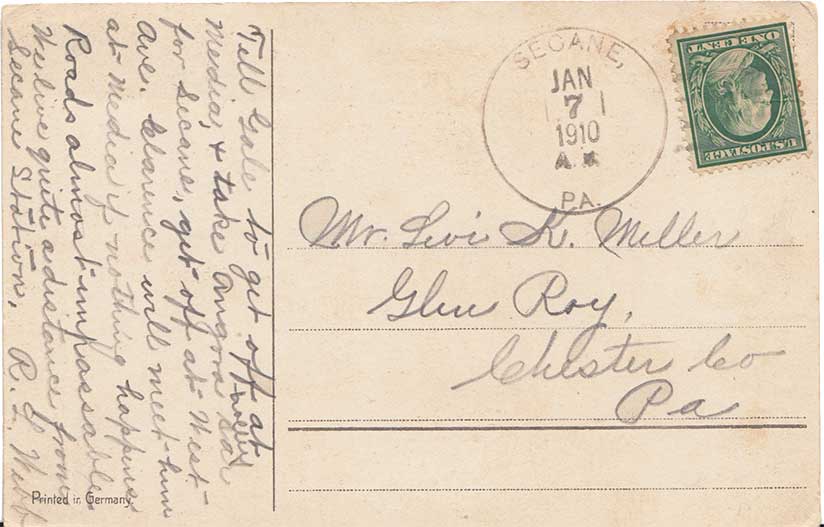 Tell Gale to get off at
Media, & take Angora car
for Secane, get off at West-
Ave. Clarence will meet him
at Media if nothing happens
Roads almost impassable
We live quite a distance from
Secane Station. R. L. Webb
Printed in Germany.
SECANE,
JAN
7
1910
A.M.
PA.
ONE CENT
U.S. POSTAGE
Mr. Levi K. Miller
Glen Roy,
Chester Co
Pa